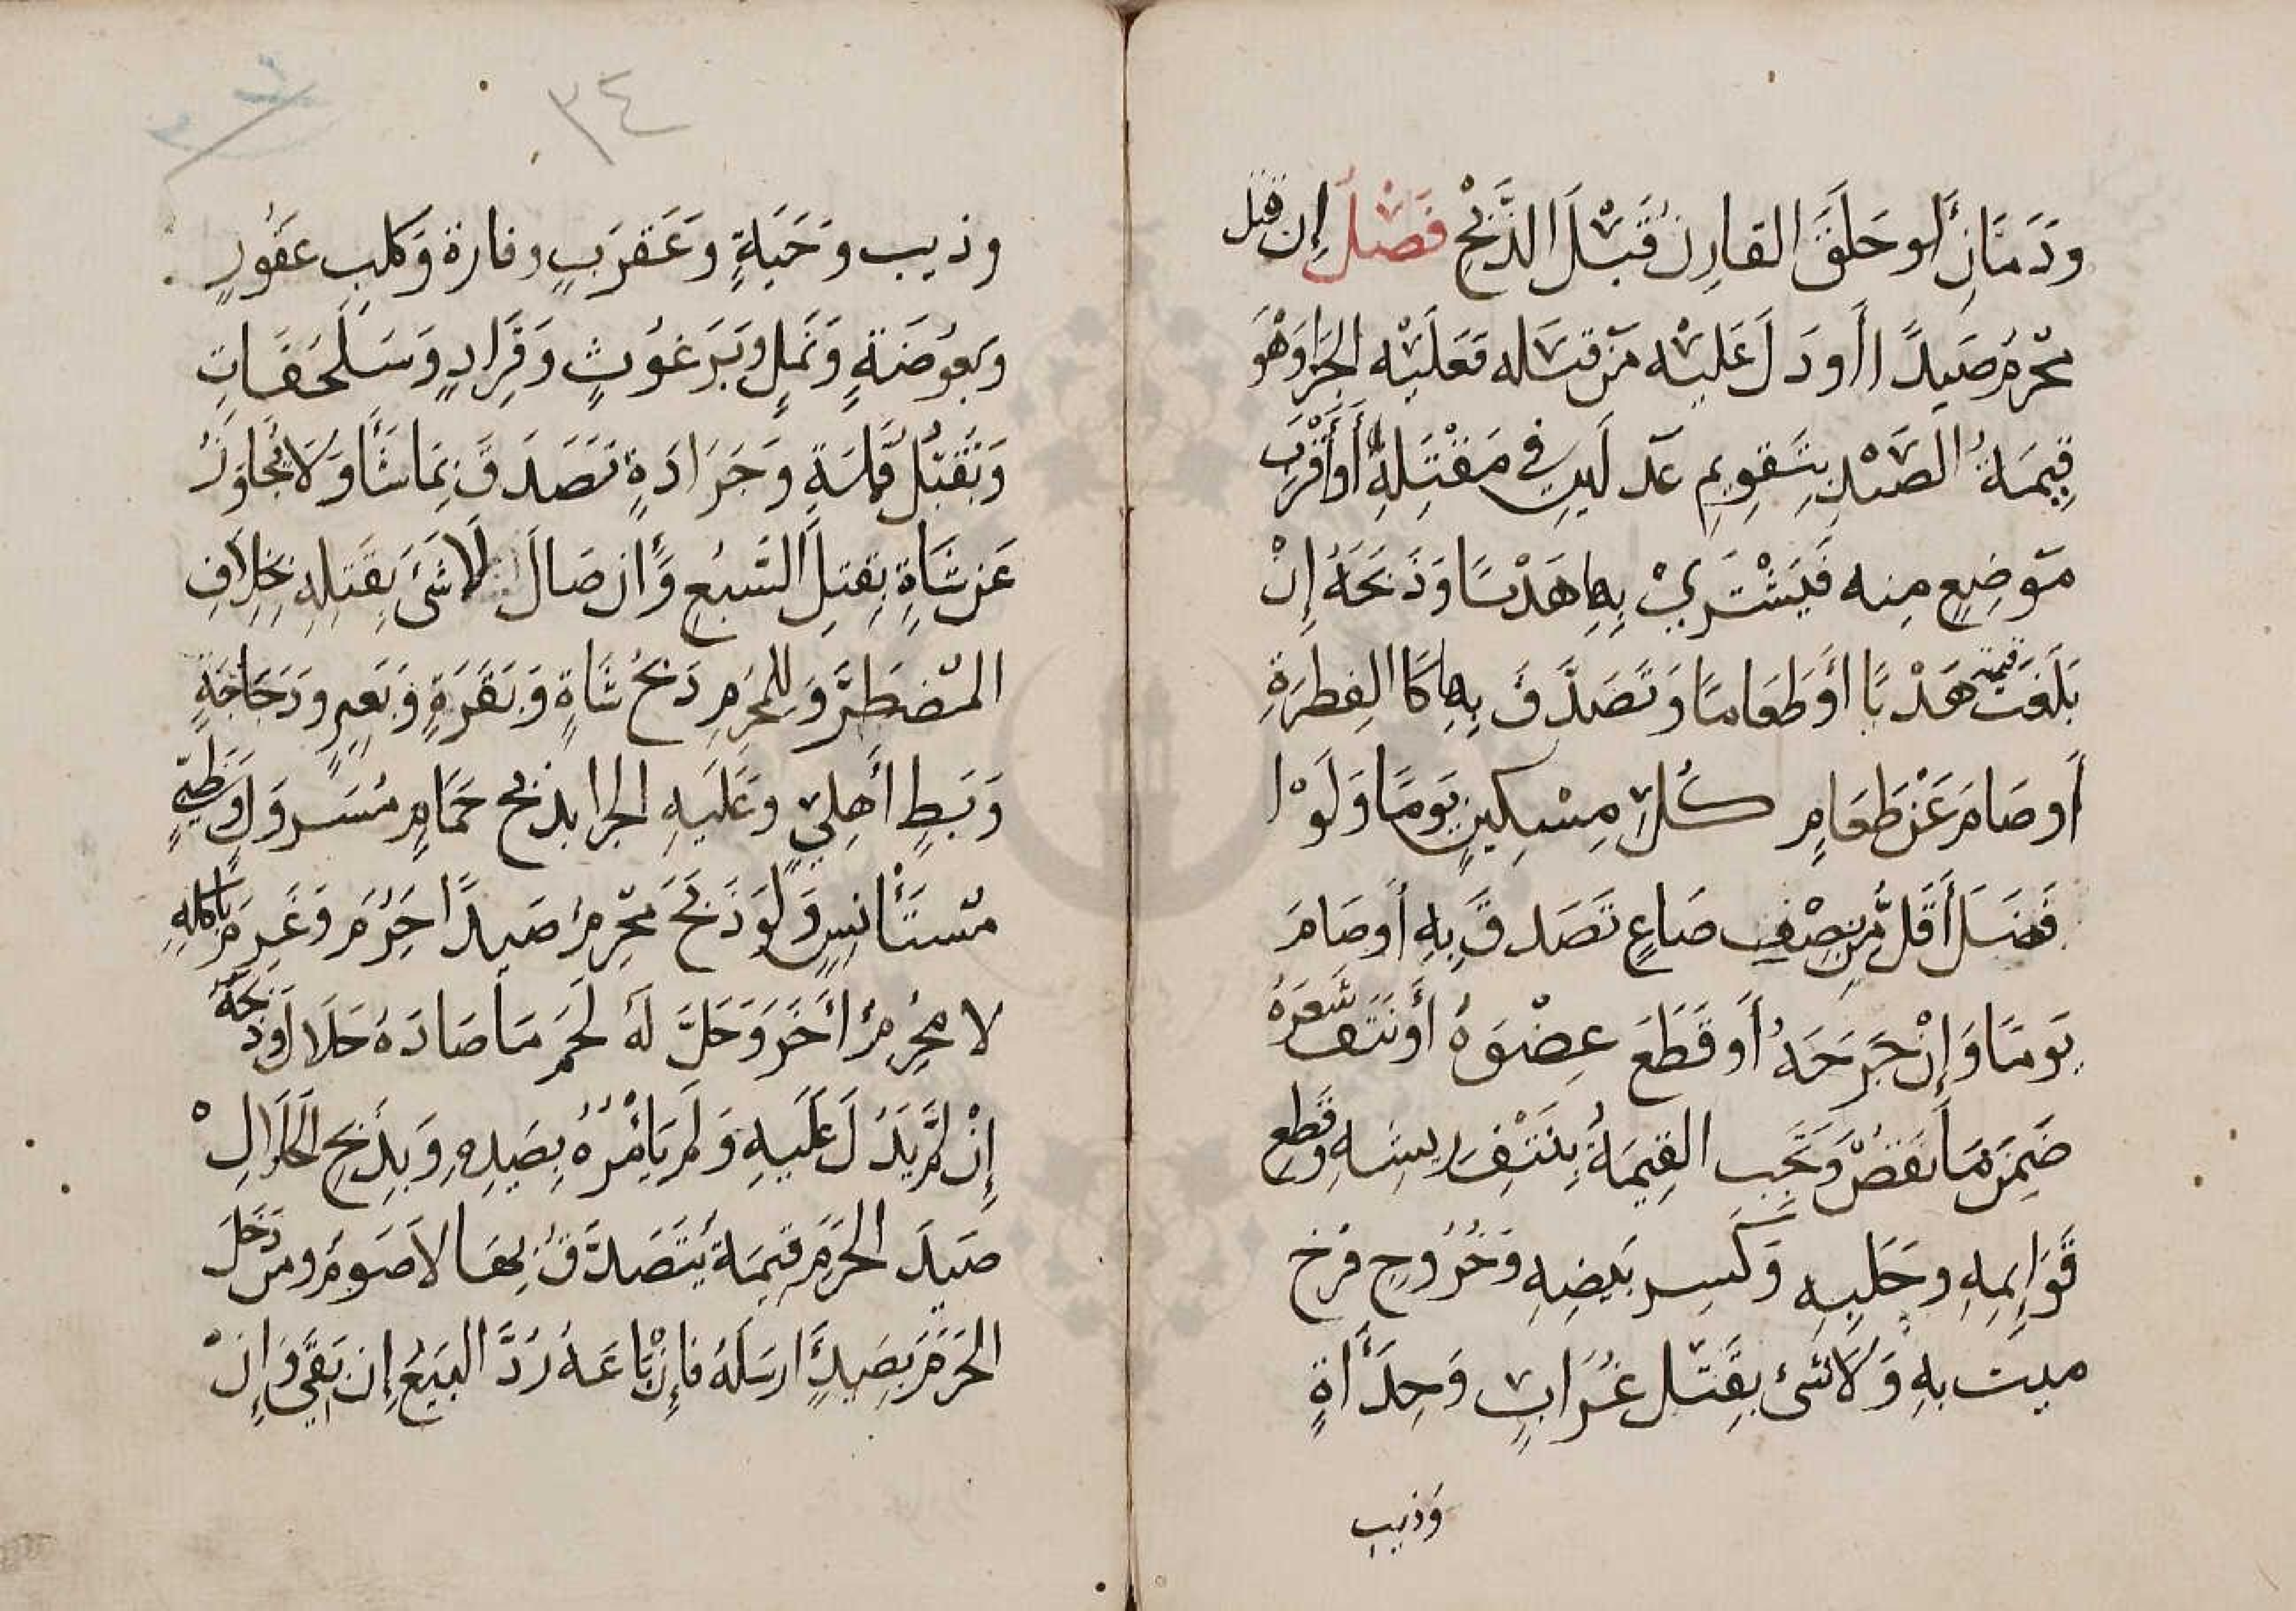 ودمان لو حلق القارن قبل الذبح فصل إن قتل
محرم صيدا أو دل عليه من قتله فعليه الجزا وهو
قيمة الصيد بتقويم عدلين في مقتله أو أقرب
موضع منه فيشتري بها هديا وذبحه إن
بلغت قيمته هديا أو طعاما وتصدق بها كا الفطرة
أو صام عن طعام كل مسكين يوما ولو ا
فضل أقل من نصف صاع تصدق به أو صام
يوما وإن جرحه أو قطع عضوه أو نتف شعره
ضمن ما نقص وتجب القيمة بنتف ريشه وقطع
قوايمه وحلبه وكسر بيضه وخروج فرخ
ميت به ولا شئ بقتل غراب وحدأة
وذيب
٣٤
وذيب وحية وعقرب وفارة وكلب عقور
وبعوضة ونمل وبرغوث وقراد وسلحفات
وبقتل قملة وجرادة تصدق بما شا ولا يجاوز
عن شاة بقتل السبع وان صال لا شئ بقتله بخلاف
المضطر وللمحرم ذبح شاة وبقرة وبعير ودجاجة
وبط أهلي وعليه الجزا بذبح حمام مسرول وظبي
مستأنس ولو ذبح محرم صيدا حرم وغرم باكله
لا محرم أخر وحل له لحم ما صاده حلال وذبحه
إن لم يدل عليه ولم يامره بصيده وبذبح الحلال
صيد الحرم قيمة يتصدق بها لا صوم ومن دخل
الحرم بصيد ارسله فإن باعه رد البيع إن بقي وإن